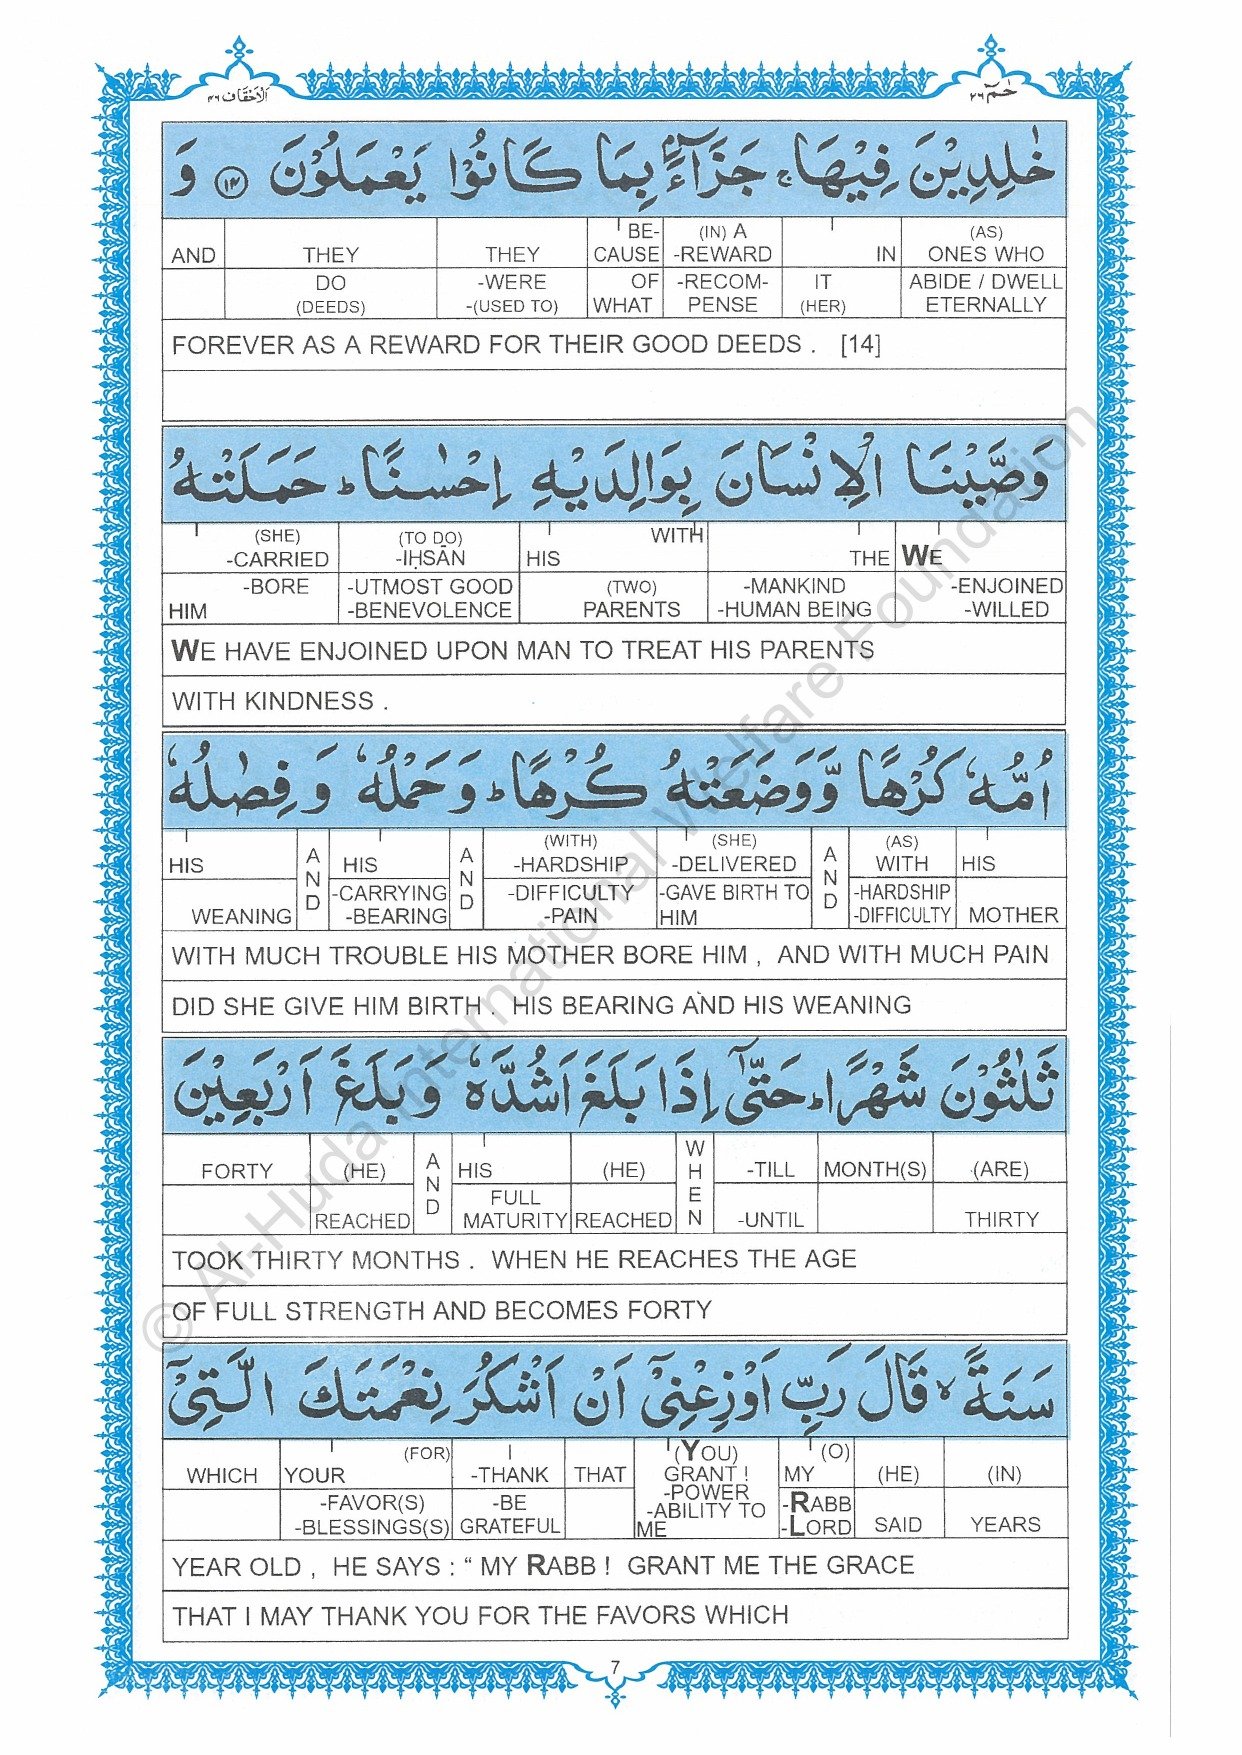 الاحقاف ٤٦
حٰمٓ ٢٦
خٰلِدِيْنَ فِيْهَا ۚ جَزَآءًۢ بِمَا كَانُوْا يَعْمَلُوْنَ ۝١٤ وَ
AND THEY THEY BE- (IN) A IN (AS)
CAUSE -REWARD ONES WHO
DO -WERE OF -RECOM- IT ABIDE / DWELL
(DEEDS) -(USED TO) WHAT PENSE (HER) ETERNALLY
FOREVER AS A REWARD FOR THEIR GOOD DEEDS . [14]
وَصَّيْنَا الْاِنْسَانَ بِوَالِدَيْهِ اِحْسٰنًا ؕ حَمَلَتْهُ
(SHE) (TO DO) WITH
-CARRIED -IḤSĀN HIS THE WE
-BORE -UTMOST GOOD (TWO) -MANKIND -ENJOINED
HIM -BENEVOLENCE PARENTS -HUMAN BEING -WILLED
WE HAVE ENJOINED UPON MAN TO TREAT HIS PARENTS
WITH KINDNESS .
اُمُّهٗ كُرْهًا وَّوَضَعَتْهُ كُرْهًا ؕ وَحَمْلُهٗ وَ فِصٰلُهٗ
(WITH) (SHE) (AS)
HIS AND HIS AND -HARDSHIP -DELIVERED AND WITH HIS
-CARRYING -DIFFICULTY -GAVE BIRTH TO -HARDSHIP
WEANING -BEARING -PAIN HIM -DIFFICULTY MOTHER
WITH MUCH TROUBLE HIS MOTHER BORE HIM , AND WITH MUCH PAIN
DID SHE GIVE HIM BIRTH . HIS BEARING AND HIS WEANING
ثَلٰثُوْنَ شَهْرًا ؕ حَتّٰىٓ اِذَا بَلَغَ اَشُدَّهٗ وَ بَلَغَ اَرْبَعِيْنَ
FORTY (HE) AND HIS (HE) WHEN -TILL MONTH(S) (ARE)
FULL
REACHED MATURITY REACHED -UNTIL THIRTY
TOOK THIRTY MONTHS . WHEN HE REACHES THE AGE
OF FULL STRENGTH AND BECOMES FORTY
سَنَةً ۙ قَالَ رَبِّ اَوْزِعْنِيْٓ اَنْ اَشْكُرَ نِعْمَتَكَ الَّتِيْٓ
(FOR) I (YOU) (O)
WHICH YOUR -THANK THAT GRANT ! MY (HE) (IN)
-FAVOR(S) -BE -POWER -RABB
-BLESSINGS(S) GRATEFUL -ABILITY TO -LORD SAID YEARS
ME
YEAR OLD , HE SAYS : “ MY RABB ! GRANT ME THE GRACE
THAT I MAY THANK YOU FOR THE FAVORS WHICH
7
© Al-Huda International Welfare Foundation